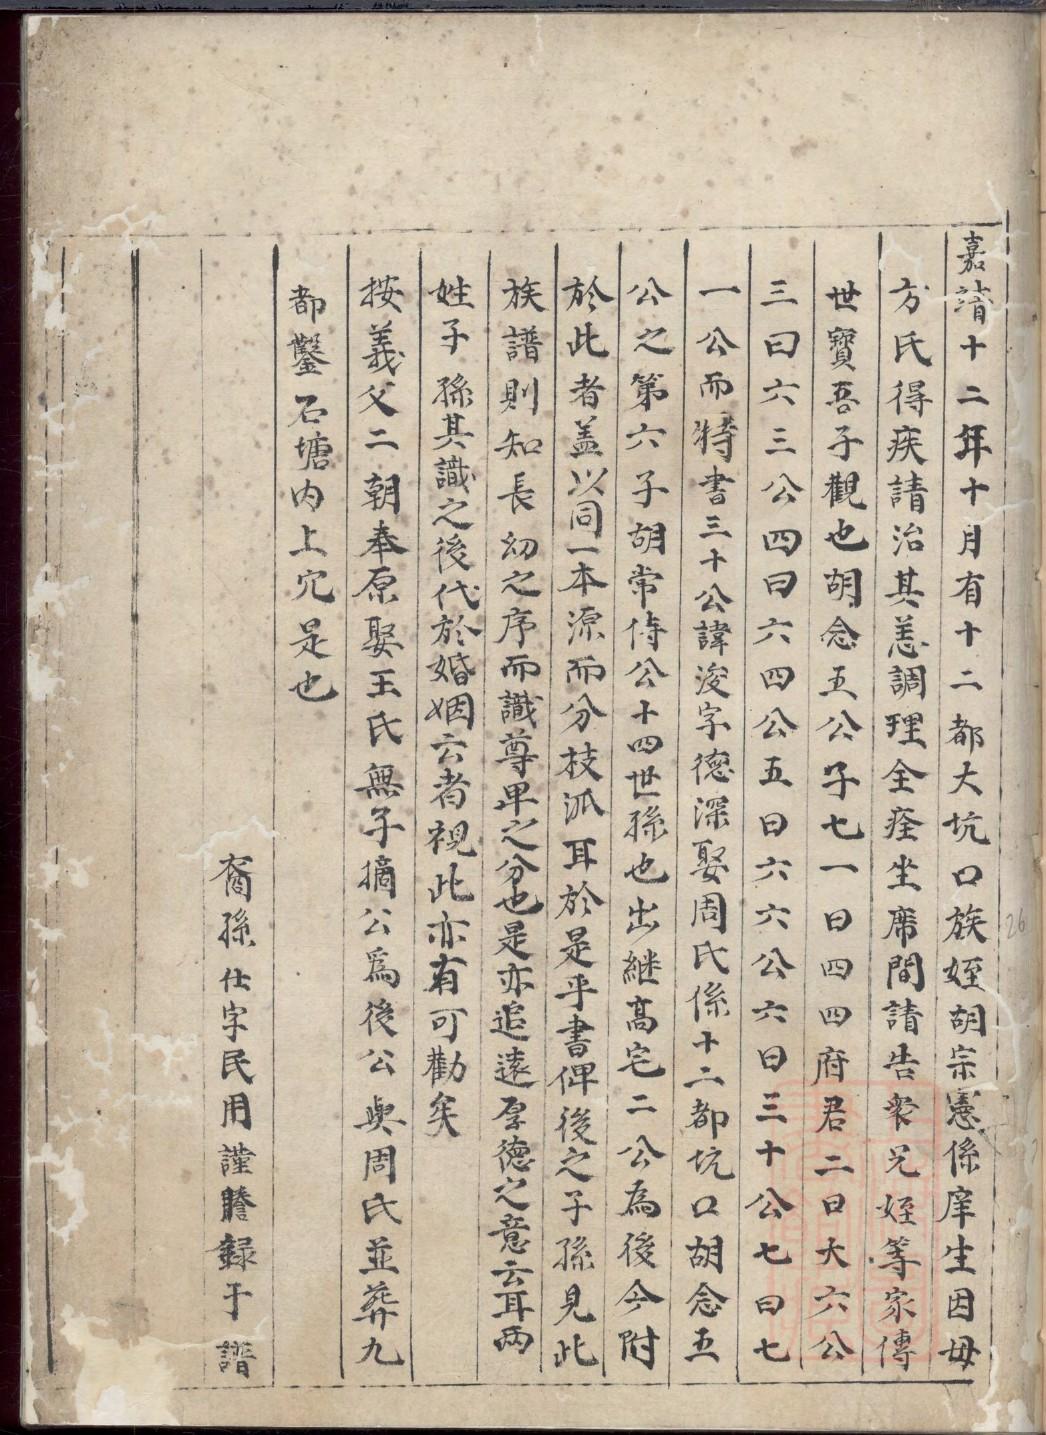 嘉靖十二年十月有十二都大坑口族姪胡宗憲係庠生因母
方氏得疾請治其恙調理全痊坐席間請告衆兄姪等家傳
世寶吾子觀也胡念五公子七一曰四四府君二曰大六公
三曰六三公四曰六四公五曰六六公六曰三十公七曰七
一公而特書三十公諱浚字德深娶周氏係十二都坑口胡念五
公之第六子胡常侍公十四世孫也出繼高宅二公為後今附
於此者盖以同一本源而分枝派耳於是乎書俾後之子孫見此
族譜則知長幼之序而識尊卑之分也是亦追遠厚德之意云耳两
姓子孫其識之後代於婚姻云者視此亦有可勸矣
按義父二朝奉原娶王氏無子摘公爲後公與周氏並葬九
都鑿石塘内上穴是也
裔孫仕字民用謹謄録于譜